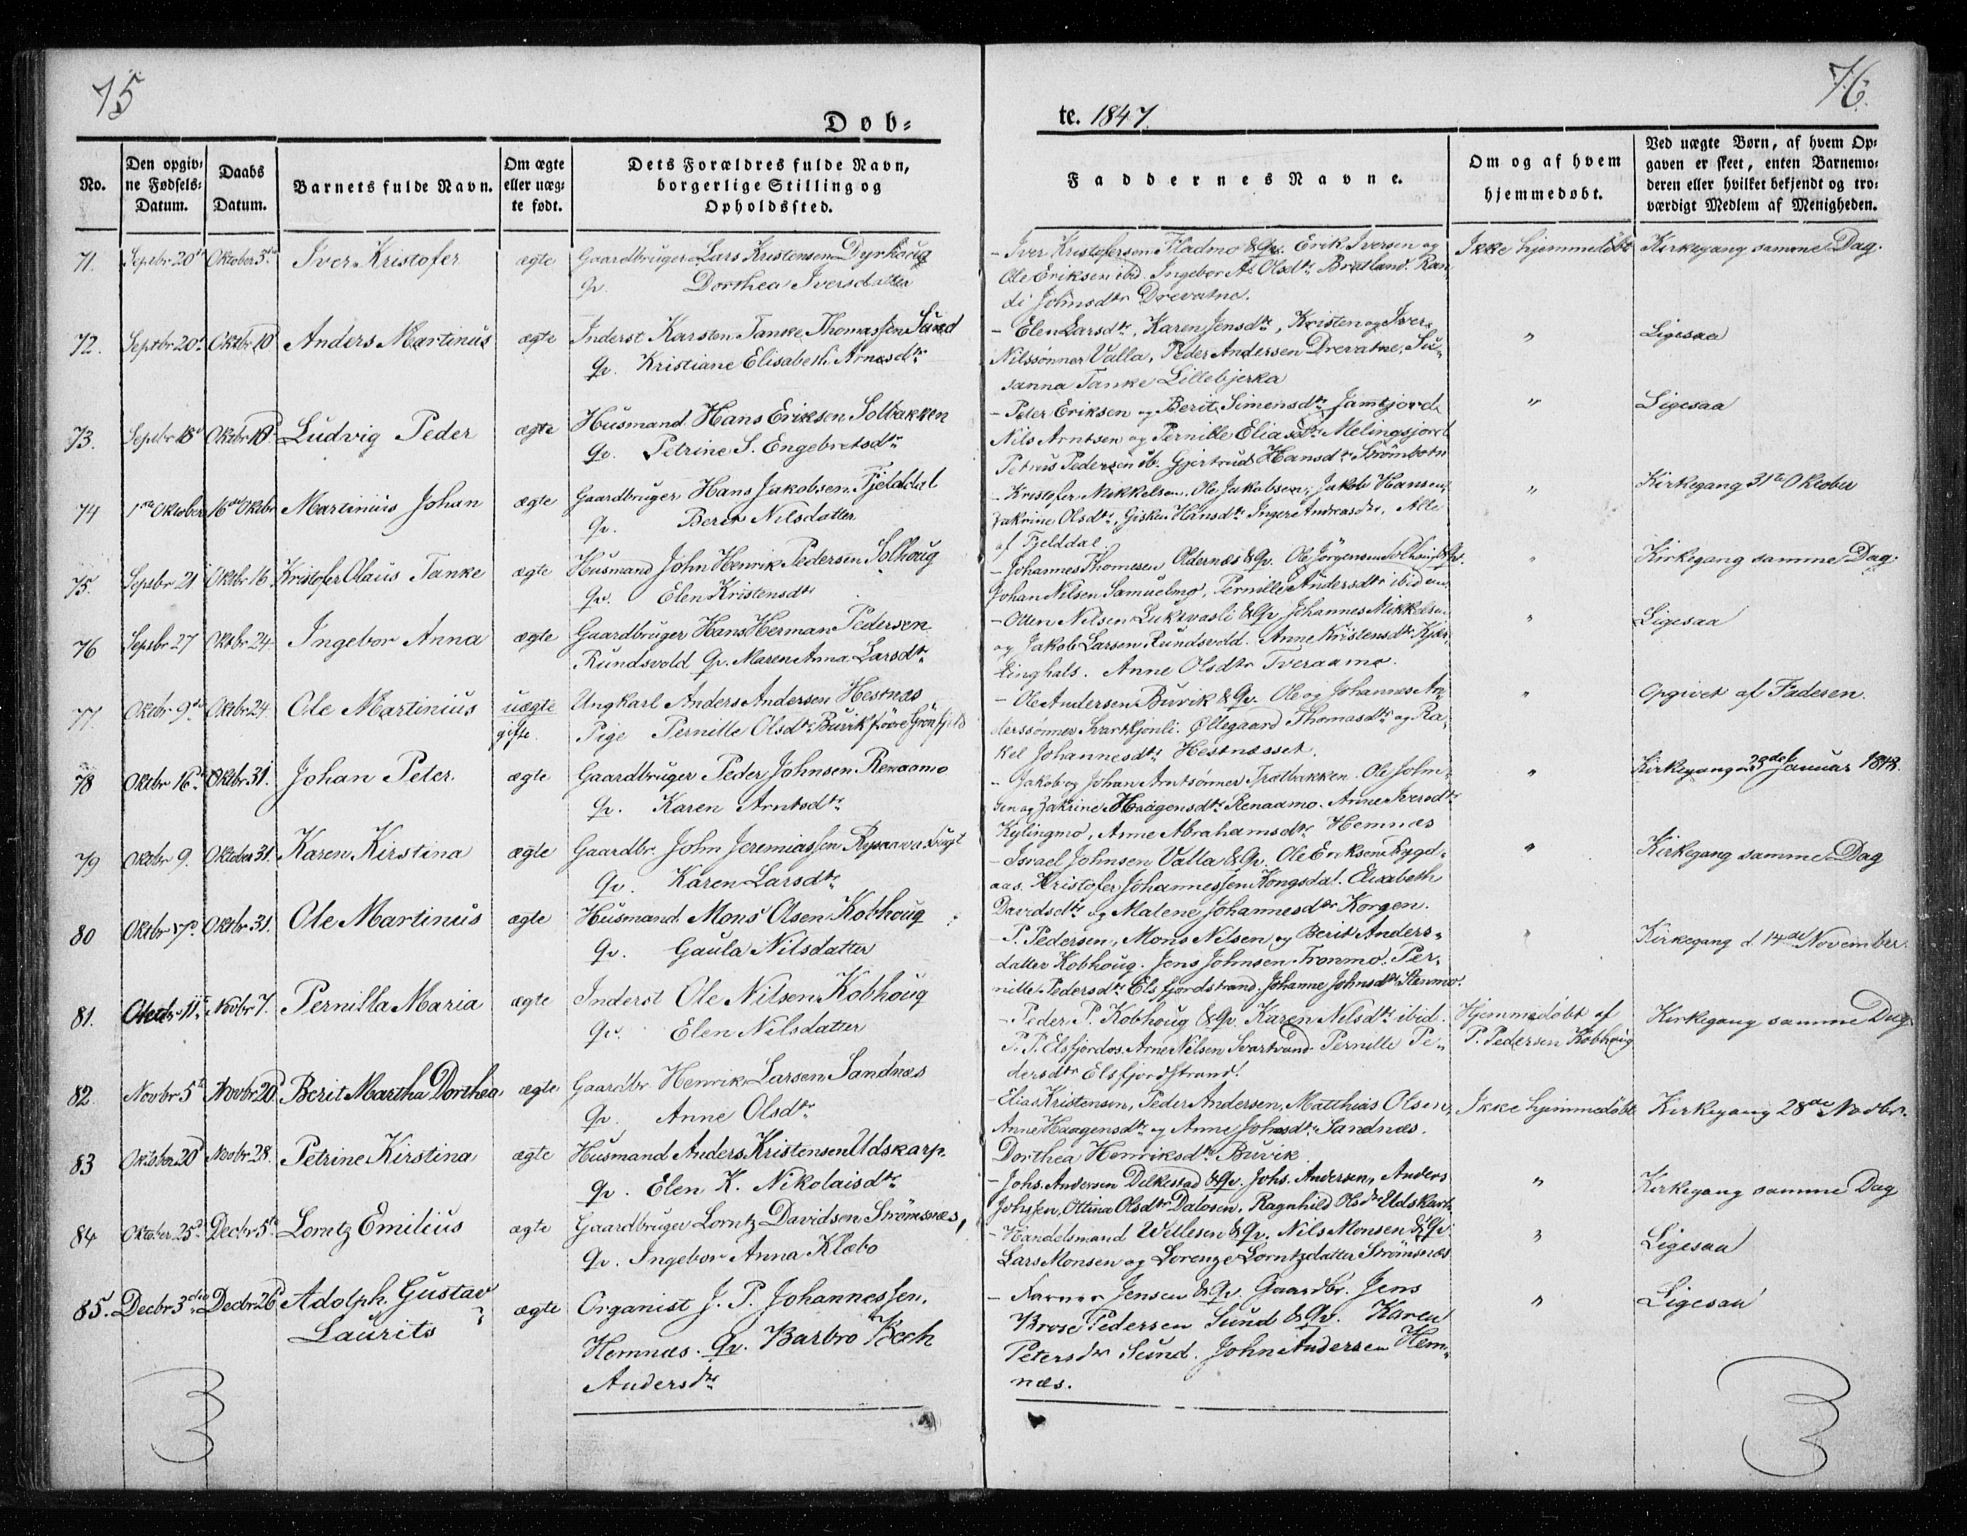 75
76.
Döb=
te. 1847.
No.
Den opgiv=
ne Fødsels=
Datum.
Daabs
Datum.
Barnets fulde Navn.
Om ægte
eller uæg=
te født.
Dets Forældres fulde Navn,
borgerlige Stilling og
Opholdssted.
Faddernes Navne.
Om og af hvem
hjemmedøbt.
Ved uægte Børn, af hvem Op=
gaven er skeet, enten Barnemo=
deren eller hvilket bekjendt og tro=
værdigt Medlem af Menigheden.
71. Septbr 20de Oktober 3de Iver Kristofer ægte Gaardbruger Lars Kristensen Dyrhoug
Qv. Dorthea Iversdatter
- Iver Kristofersen Fladmo & Qv. Erik Iversen og
Ole Eriksen ibid. Ingebor A. Olsdtr Bratland. Ran
di Johnsdtr Drevatne.
Ikke hjemmedøbt Kirkegang samme Dag.
72. Septbr 20de Oktbr 10 Anders Martinus ægte Inderst Karsten Tanke Thomassen Sund
Qv. Kristiane Elisabeth Arnesdtr
- Elen Larsdtr, Karen Jensdtr, Kristen og Iver
Nilssønner Valla, Peder Andersen Drevatne, Su=
sanna Tanke Lillebjerka
" Ligesaa
73. Septbr 18de Oktbr 10 Ludvig Peder ægte Husmand Hans Eriksen Solbakken
Qv. Petrine S. Engebretsdtr
- Peter Eriksen og Berit Simensdtr Jamtjord
Nils Arntsen og Pernille Eliasdtr Melingsjord
Petrus Pedersen ib. Gjertrud Hansdtr Strømbotn
" Ligesaa
74 1ste Oktober 16de Oktbr Martinius Johan ægte Gaardbruger Hans Jakobsen Fjelddal
Qv. Berit Nilsdatter
- Kristofer Mikkelsen. Ole Jakobsen, Jakob Hansen,
Zakrine Olsdtr, Gisken Hansdtr Inger Andreasdtr, Alle
af Fjelddal
" Kirkegang 31te Oktober
75. Septbr 21 Oktbr 16. Kristofer Olaus Tanke ægte Husmand John Henrik Pedersen Solhoug
Qv. Elen Kristensdtr
- Johannes Thomesen Oldernæs & Qv. Ole Jörgensen Solhoug & Qv.
Johan Nilsen Samuelmo, Pernille Andersdtr ibidem
" Kirkegang samme Dag.
76 Septbr 27 Oktbr 24 Ingebor Anna ægte Gaardbruger Hans Herman Pedersen
Rundsvold Qv. Maren Anna Larsdtr
- Otten Nilsen Lukvasli & Qv. Johannes Mikkelsen
og Jakob Larsen Rundsvold. Anne Kristensdtr Kjær
linghals. Anne Olsdtr Tveraamo.
" Ligesaa
77 Oktbr 9de Oktbr 24 Ole Martinius uægte
gifte.
Ungkarl Anders Andersen Hestnæs
Pige Pernille Olsdtr Buvik
- Ole Andersen Buvik & Qv. Ole og Johannes An
derssønner Svartkjønli. Øllegaard Thomasdtr og Ra=
kel Johannesdtr Hestnæsset.
" Opgivet af Faderen.
78 Oktbr 16de Oktbr 31. Johan Peter. ægte Gaardbruger Peder Johnsen Renaamo
Qv. Karen Arntsdtr
- Jakob og Johan Arntsønner Trætbakken. Ole John=
sen og Zakrine Haagensdtr Renaamo. Anne Iversdtr
Kylingmo, Anne Abrahamsdtr Hemnæs
" Kirkegang 23de Januar 1848.
79 Oktbr 9. Oktober 31. Karen Kirstina ægte Gaardbr. John Jeremiassen
Qv. Karen Larsdtr
- Israel Johnsen Valla & Qv. Ole Eriksen Bygd=
aas. Kristofer Johannessen Kongsdal. Elisabeth
Davidsdtr og Malene Johannesdtr Korgen.
" Kirkegang samme Dag
80 Oktbr 7de Oktbr 31. Ole Martinus ægte Husmand Mons Olsen Kobhoug
Qv. Gaula Nilsdatter
- P. Pedersen, Mons Nilsen og Berit Anders=
datter Kobhoug. Jens Johnsen Tronmo. Per=
nille Pedersdtr Elsfjordstrand. Johanne Johnsdtr Stenmo.
" Kirkegang d 14de November.
81. Oktbr 11te Novbr 7. Pernilla Maria ægte Inderst Ole Nilsen Kobhoug
Qv. Elen Nilsdatter
- Peder P. Kobhoug & Qv. Karen Nilsdtr ibid.
P. P. Elsfjordos. Arne Nilsen Svartvand. Pernille Pe=
dersdtr Elsfjordstrand.
Hjemmedøbt af
P. Pedersen Kobhoug
Kirkegang samme Dag
82. Novbr 5te Novbr 20 Berit Martha Dorthea ægte Gaardbr Henrik Larsen Sandnæs
Qv. Anne Olsdtr
- Elias Kristensen, Peder Andersen, Matthias Olsen,
Anne Haagensdtr og Anne Johnsdtr Sandnæs.
Dorthea Henriksdtr Buvik
Ikke hjemmedøbt Kirkegang 28de Novbr.
83 Oktober 20de Novbr 28. Petrine Kirstina ægte Husmand Anders Kristensen Udskarp
Qv. Elen K. Nikolaisdtr
- Johs. Andersen Dilkestad & Qv. Johs. Andersen, Anders
Johssen, Ottina Olsdtr Dalosen, Ragnhild Olsdtr Udskarp
" Kirkegang samme Dag
84 Oktober 25de Decbr 5te Lorntz Emilius ægte Gaardbruger Lorntz Davidsen Strømsnæs,
Qv. Ingebor Anna Klæbo
- Handelsmand Wellesen & Qv. Nils Monsen & Qv
Lars Monsen og Lorenze Lorntzdatter Strømsnæs
" Ligesaa
85. Decbr 3die Decbr 26 Adolph Gustav
Laurits
ægte Organist J. P. Johannessen,
Hemnæs. Qv. Barbro Bech
Andersdtr
- Farver Jensen & Qv. Gaardbr. Jens
Brose Pedersen Sund & Qv. Karen
Petersdtr Sund. John Andersen Hem=
næs.
" Ligesaa